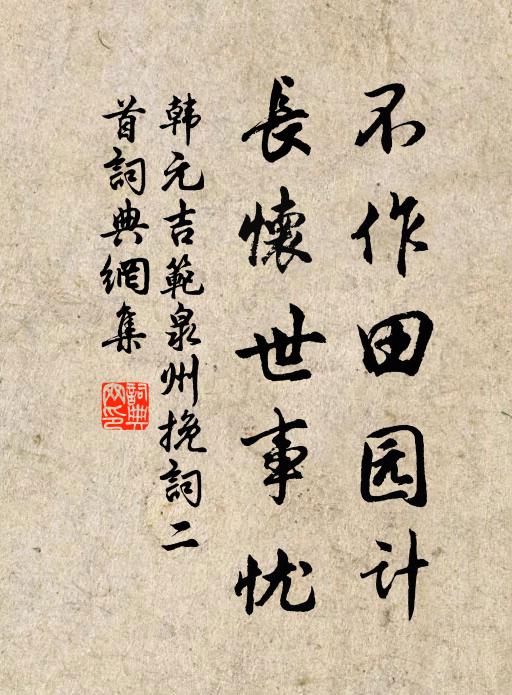 不作田园计
長懷世事忧
韩元吉範泉州挽詞二
首詞典網集
詞典
网印